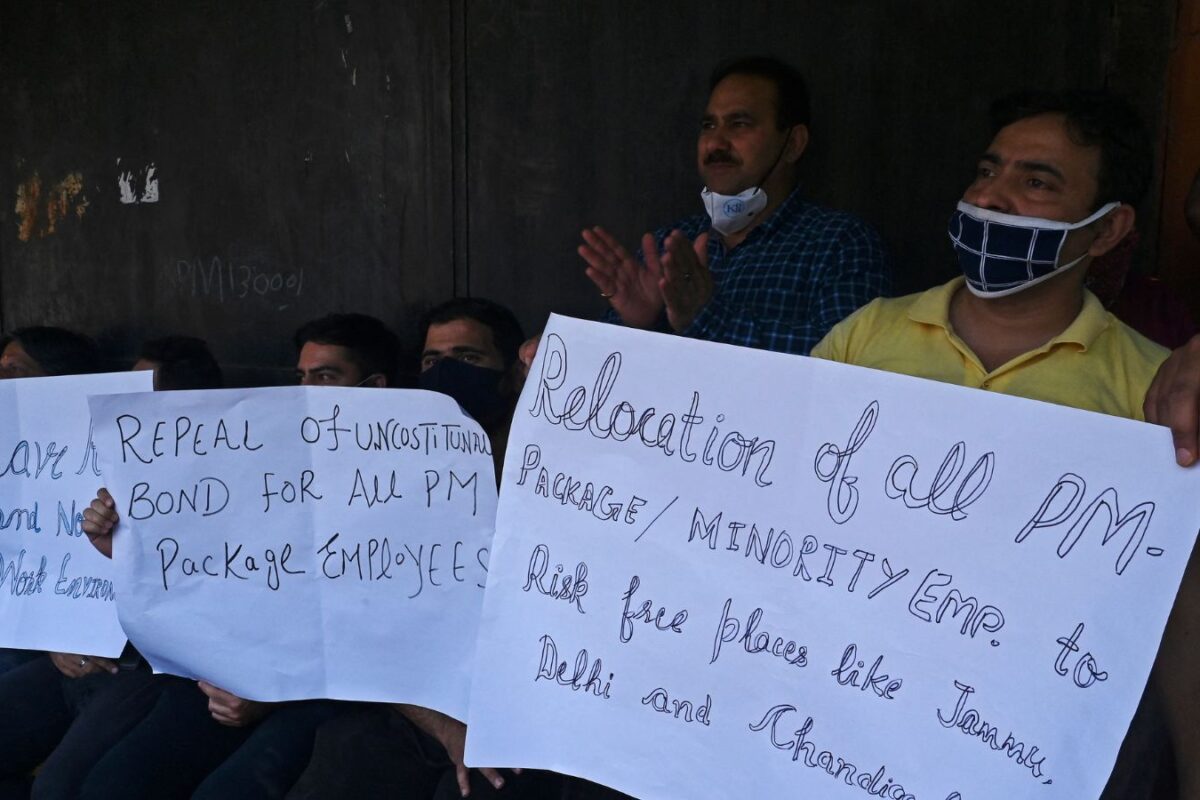 ave
and No
Work Environ
REPEAL OF UNCOSTITUNAL
BOND FOR All PM
Package EMPLOYEES
Relocation of all PM-
PACKAGE/MINORITY EMP. to
Risk free places like Jammu,
Delhi and Chandig
PM130001